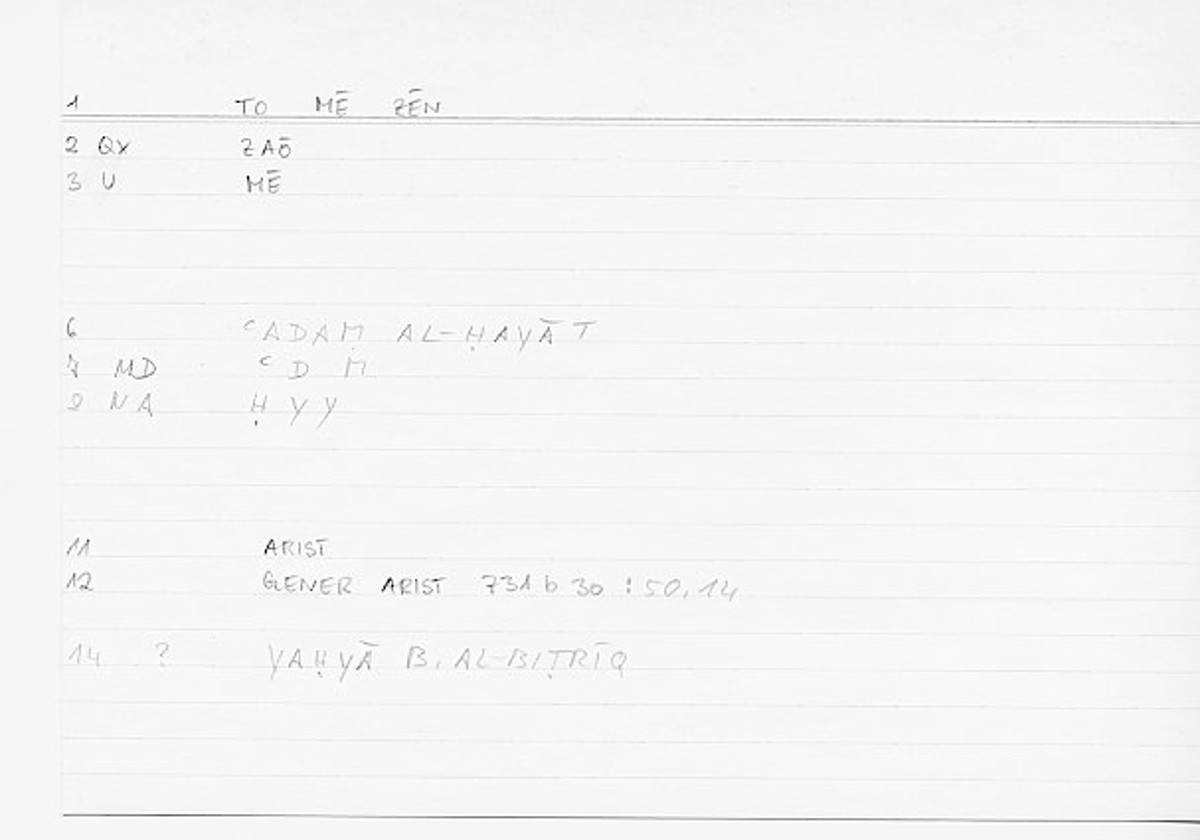 1 TO MĒ ZĒN
2 QX ZAŌ
3 U MĒ
6 ᶜADAM AL-ḤAYĀT
7 MD ᶜDM
8 NA ḤYY
11 ARIST
12 GENER ARIST 731 b 30 : 50,14
14 ? YAḤYĀ B. AL-BIṬRĪQ